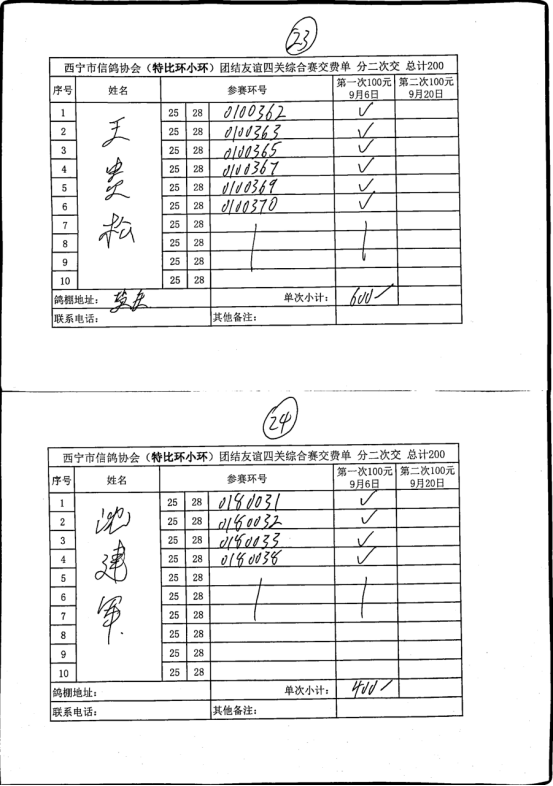 23
西宁市信鸽协会（特比环小环）团结友谊四关综合赛交费单 分二次交 总计200
序号 姓名 参赛环号 第一次100元 9月6日 第二次100元 9月20日
1 25 28 0100362 ✓
2 25 28 0100363 ✓
3 25 28 0100365 ✓
4 25 28 0100367 ✓
5 25 28 0100369 ✓
6 25 28 0100370 ✓
7 25 28
8 25 28
9 25 28
10 25 28
王 松
鸽棚地址：
单次小计： 600
联系电话： 其他备注：
24
西宁市信鸽协会（特比环小环）团结友谊四关综合赛交费单 分二次交 总计200
序号 姓名 参赛环号 第一次100元 9月6日 第二次100元 9月20日
1 25 28 0180031 ✓
2 25 28 0180032 ✓
3 25 28 0180033 ✓
4 25 28 0180038 ✓
5 25 28
6 25 28
7 25 28
8 25 28
9 25 28
10 25 28
沈建军
鸽棚地址： 单次小计： 400
联系电话： 其他备注：